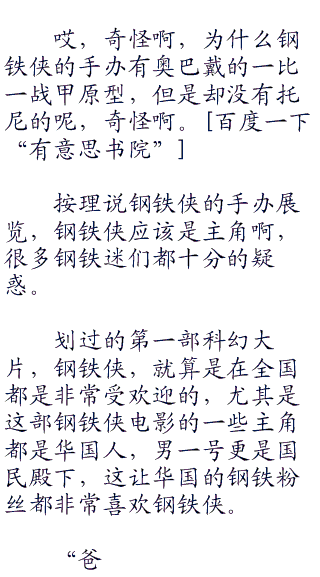 哎，奇怪啊，为什么钢
铁侠的手办有奥巴戴的一比
一战甲原型，但是却没有托
尼的呢，奇怪啊。[百度一下
“有意思书院”]
按理说钢铁侠的手办展
览，钢铁侠应该是主角啊，
很多钢铁迷们都十分的疑
惑。
划过的第一部科幻大
片，钢铁侠，就算是在全国
都是非常受欢迎的，尤其是
这部钢铁侠电影的一些主角
都是华国人，男一号更是国
民殿下，这让华国的钢铁粉
丝都非常喜欢钢铁侠。
“爸